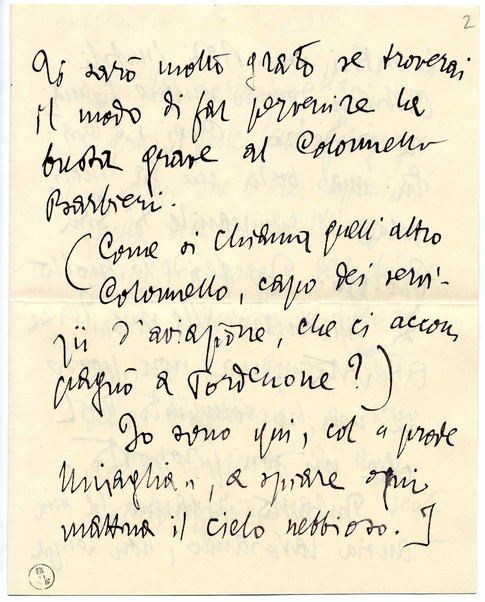 2
Ti sarò molto grato se troverai
il modo di far pervenire la
busta grave al Colonnello
Barbieri.
(Come si chiama quell'altro
Colonnello, capo dei servi-
zii d'aviazione, che ci accom
pagnò a Pordenone?)
Io sono qui, col "prode
Miraglia", a spiare ogni
mattina il cielo nebbioso.]